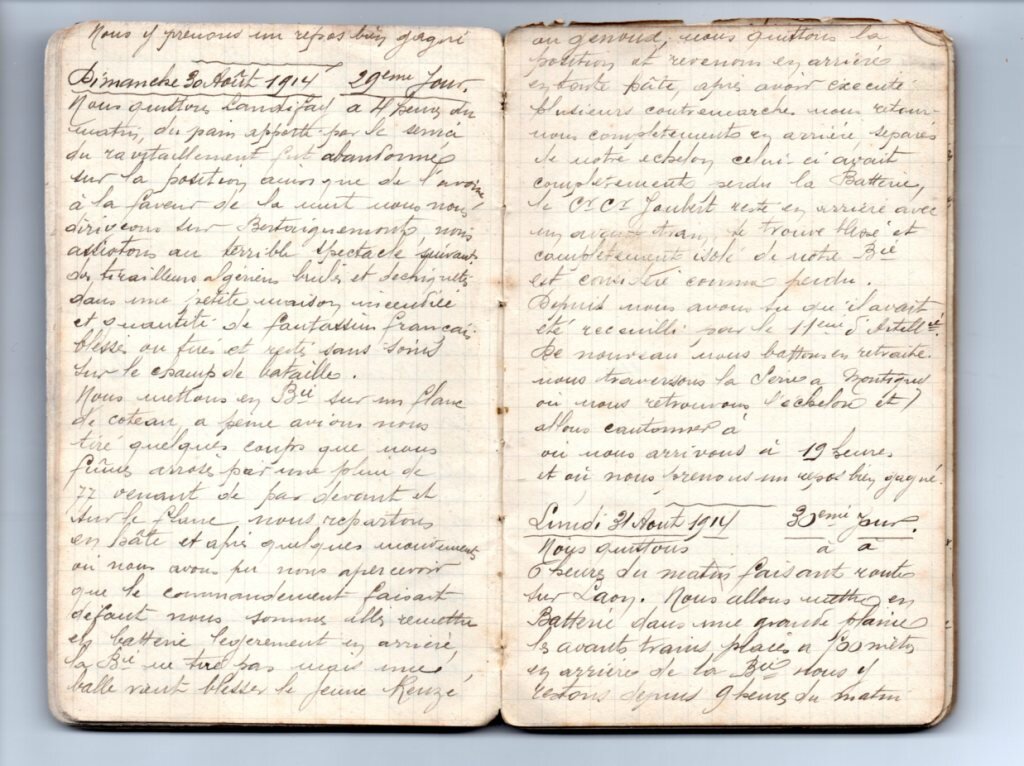 Nous y prenons un repos bien gagné
Dimanche 30 Août 1914 29eme Jour.
Nous quittons Landifay a 4 heures du
matin, du pain apporté par le service
du ravitaillement fut abandonné
sur la position ainsi que de l'avoine
à la faveur de la nuit nous nous
dirigeons sur Bertaignemont, nous
assistons au terrible spectacle suivant
des tirailleurs algeriens brulés et dechiquetés
dans une petite maison incendiée
et quantité de fantassins français
blessés ou tués et restés sans soins
sur le champ de bataille.
Nous mettons en Bie sur un flanc
de coteau, a peine avions nous
tiré quelques coups que nous
fumes arrosés par une pluie de
77 venant de par devant et
sur le flanc nous repartons
en hâte et après quelques mouvements
où nous avons pu nous apercevoir
que le commandement faisait
defaut nous sommes allés remettre
en batterie legerement en arrière,
la Bie ne tire pas mais une
balle vient blesser le jeune Reuzé
au genoud, nous quittons la
position et revenons en arrière
en toute hâte, après avoir executé
plusieurs contremarches nous retour-
nons completements en arrière séparés
de notre echelon celui ci ayant
completement perdu la Batterie,
le Cr Cr Joubert resté en arrière avec
un avant train, se trouve blessé et
completement isolé de notre Bie
est considéré comme perdu.
Depuis nous avons su qu'il avait
été recueilli par le 11eme d'Artillie.
De nouveau nous battons en retraite.
nous traversons la Serre a Montigny
où nous retrouvons l'echelon et
allons cantonner à
où nous arrivons à 19 heures
et où nous prenons un repos bien gagné.
Lundi 31 Aout 1914 30eme Jour.
Nous quittons à à
6 heures du matin faisant route
sur Laon. Nous allons mettre en
Batterie dans une grande plaine
les avants trains placés a 700 mètres
en arrière de la Bie nous y
restons depuis 9 heures du matin